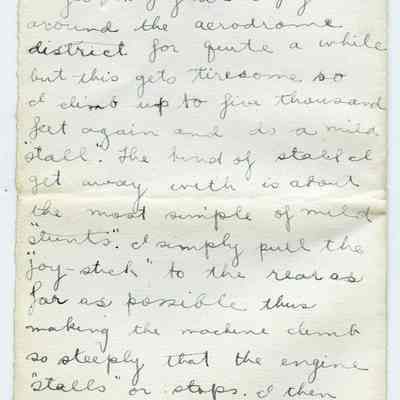 around the aerodrome
district for quite a while
but this gets tiresome so
I climb up to five thousand
feet again and do a mild
"stall". The kind of stall I
get away with is about
the most simple of mild
"stunts". I simply pull the
"joy-stick" to the rear as
far as possible thus
making the machine climb
so steeply that the engine
"stalls" or stops. I then